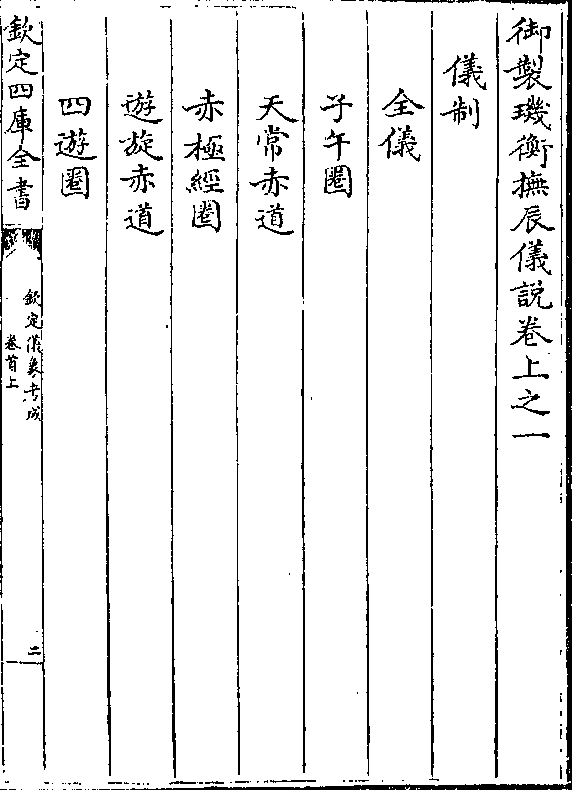 御製璣衡撫辰儀說卷上之一
儀制
全儀
子午圏
天常赤道
赤極經圏
遊旋赤道
四遊圏
欽定四庫全書
欽定儀象考成
卷首上
二